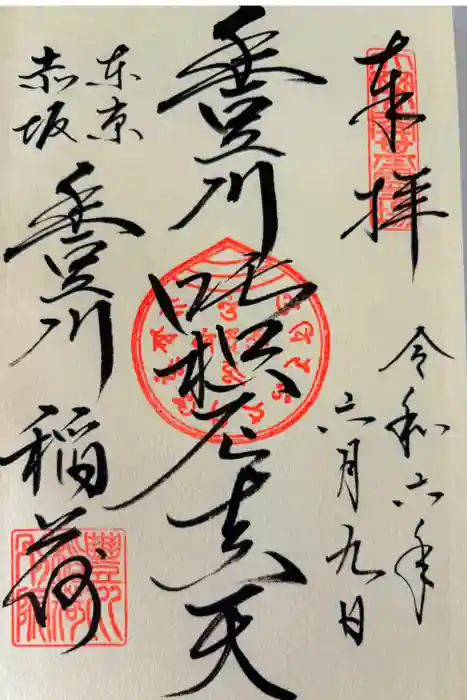 奉拝
令和六年
六月九日
豊川吒枳尼真天
東京
赤坂
豊川稲荷